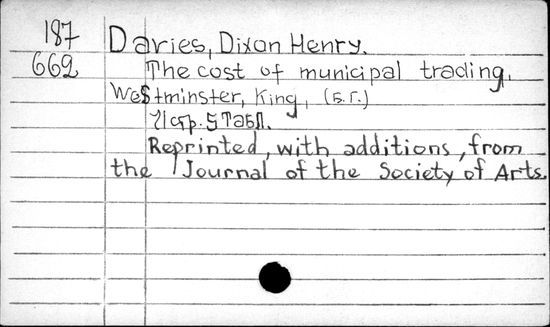 187
669
Davies, Dixon Henry.
The cost of municipal trading.
Westminster, King, (б.г.)
71 стр. 5 табл.
Reprinted, with additions, from
the Journal of the Society of Arts.